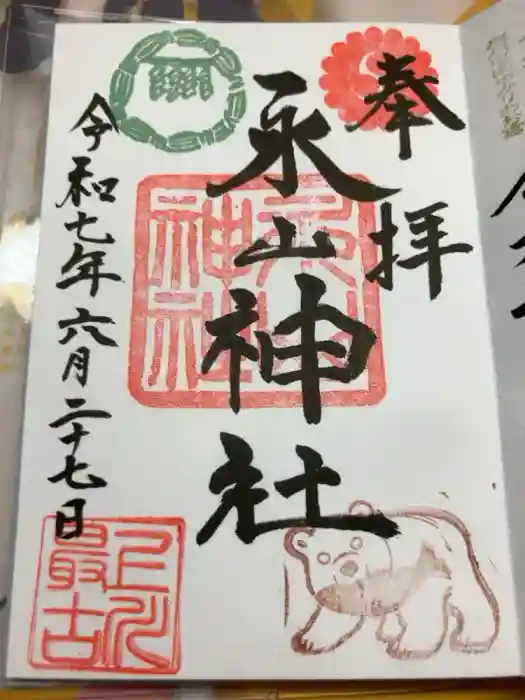 奉拝
永山神社
永山
神社
令和七年六月二十七日
上川
最古